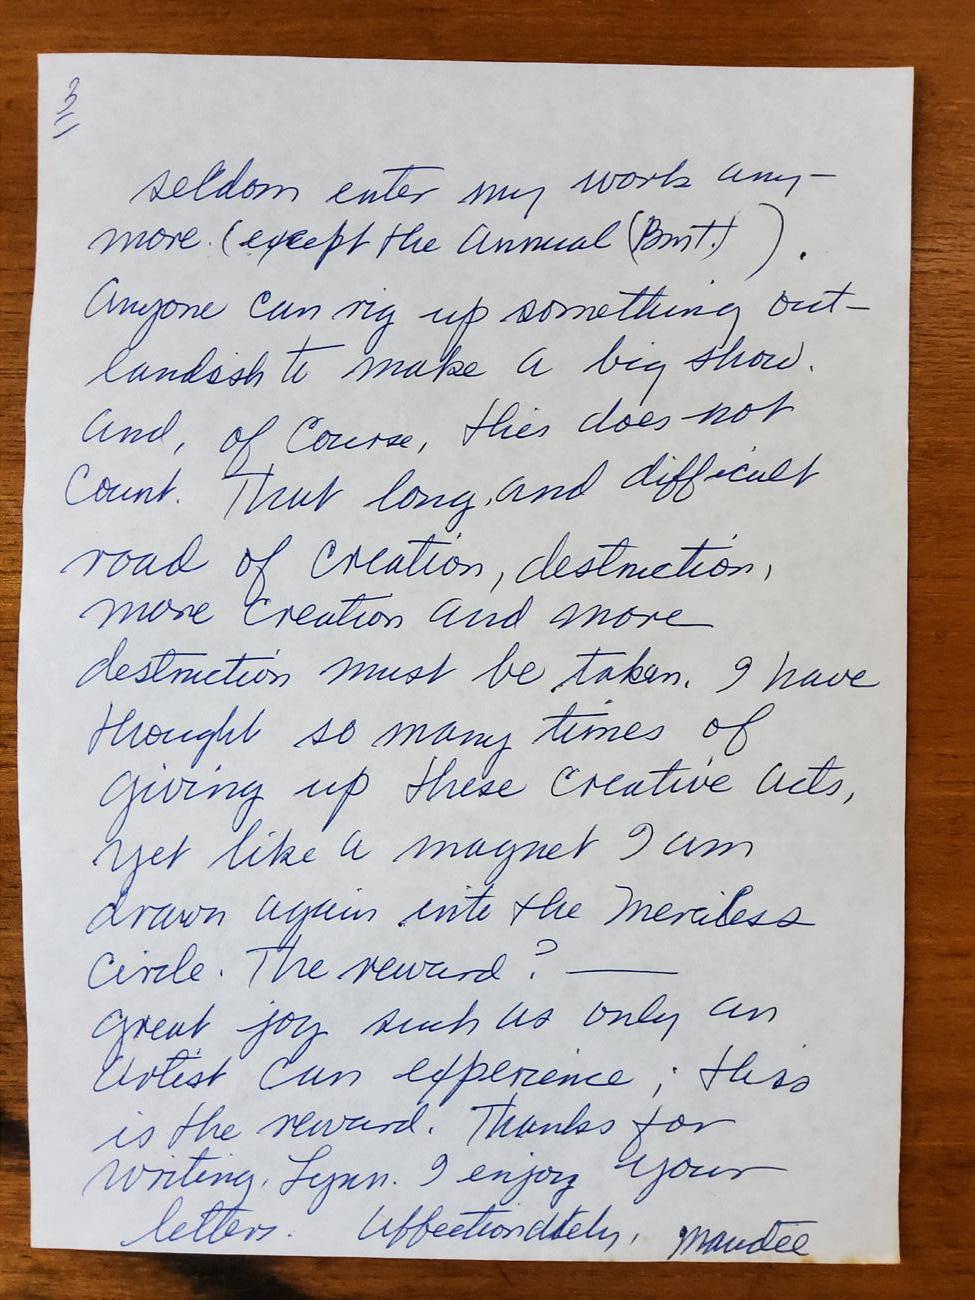 3
seldom enter my work any-
more. (except the Annual (Bmt.) ).
Anyone can rig up something out-
landish to make a big show.
And, of course, this does not
count. That long, and difficult
road of creation, destruction,
more creation and more
destruction must be taken. I have
thought so many times of
giving up these creative acts,
yet like a magnet I am
drawn again into the merciless
circle. The reward? —
great joy such as only an
artist can experience; this
is the reward. Thanks for
writing, Lynn. I enjoy your
letters. Affectionately, Maudee